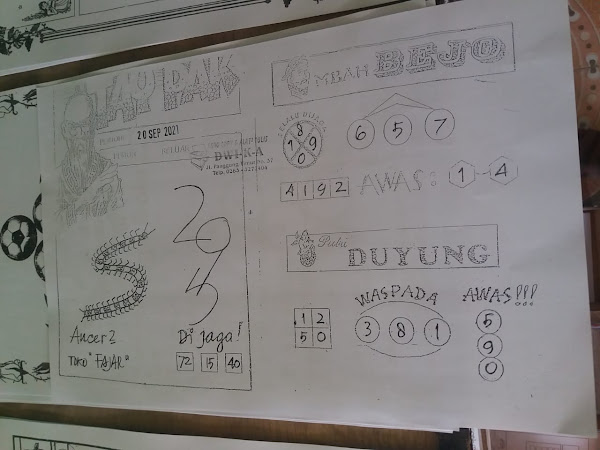 20 SEP 2021
DWI-K-A
294
5
Ancer2
TOKO "FAJAR"
Di jaga!
72 15 40
MBAH BEJO
SELALU UNGGUL
8
1 9
0
6 5 7
4 1 9 2
AWAS: 1-4
Putri
DUYUNG
1 2
5 0
WASPADA
3 8 1
AWAS!!!
5
9
0